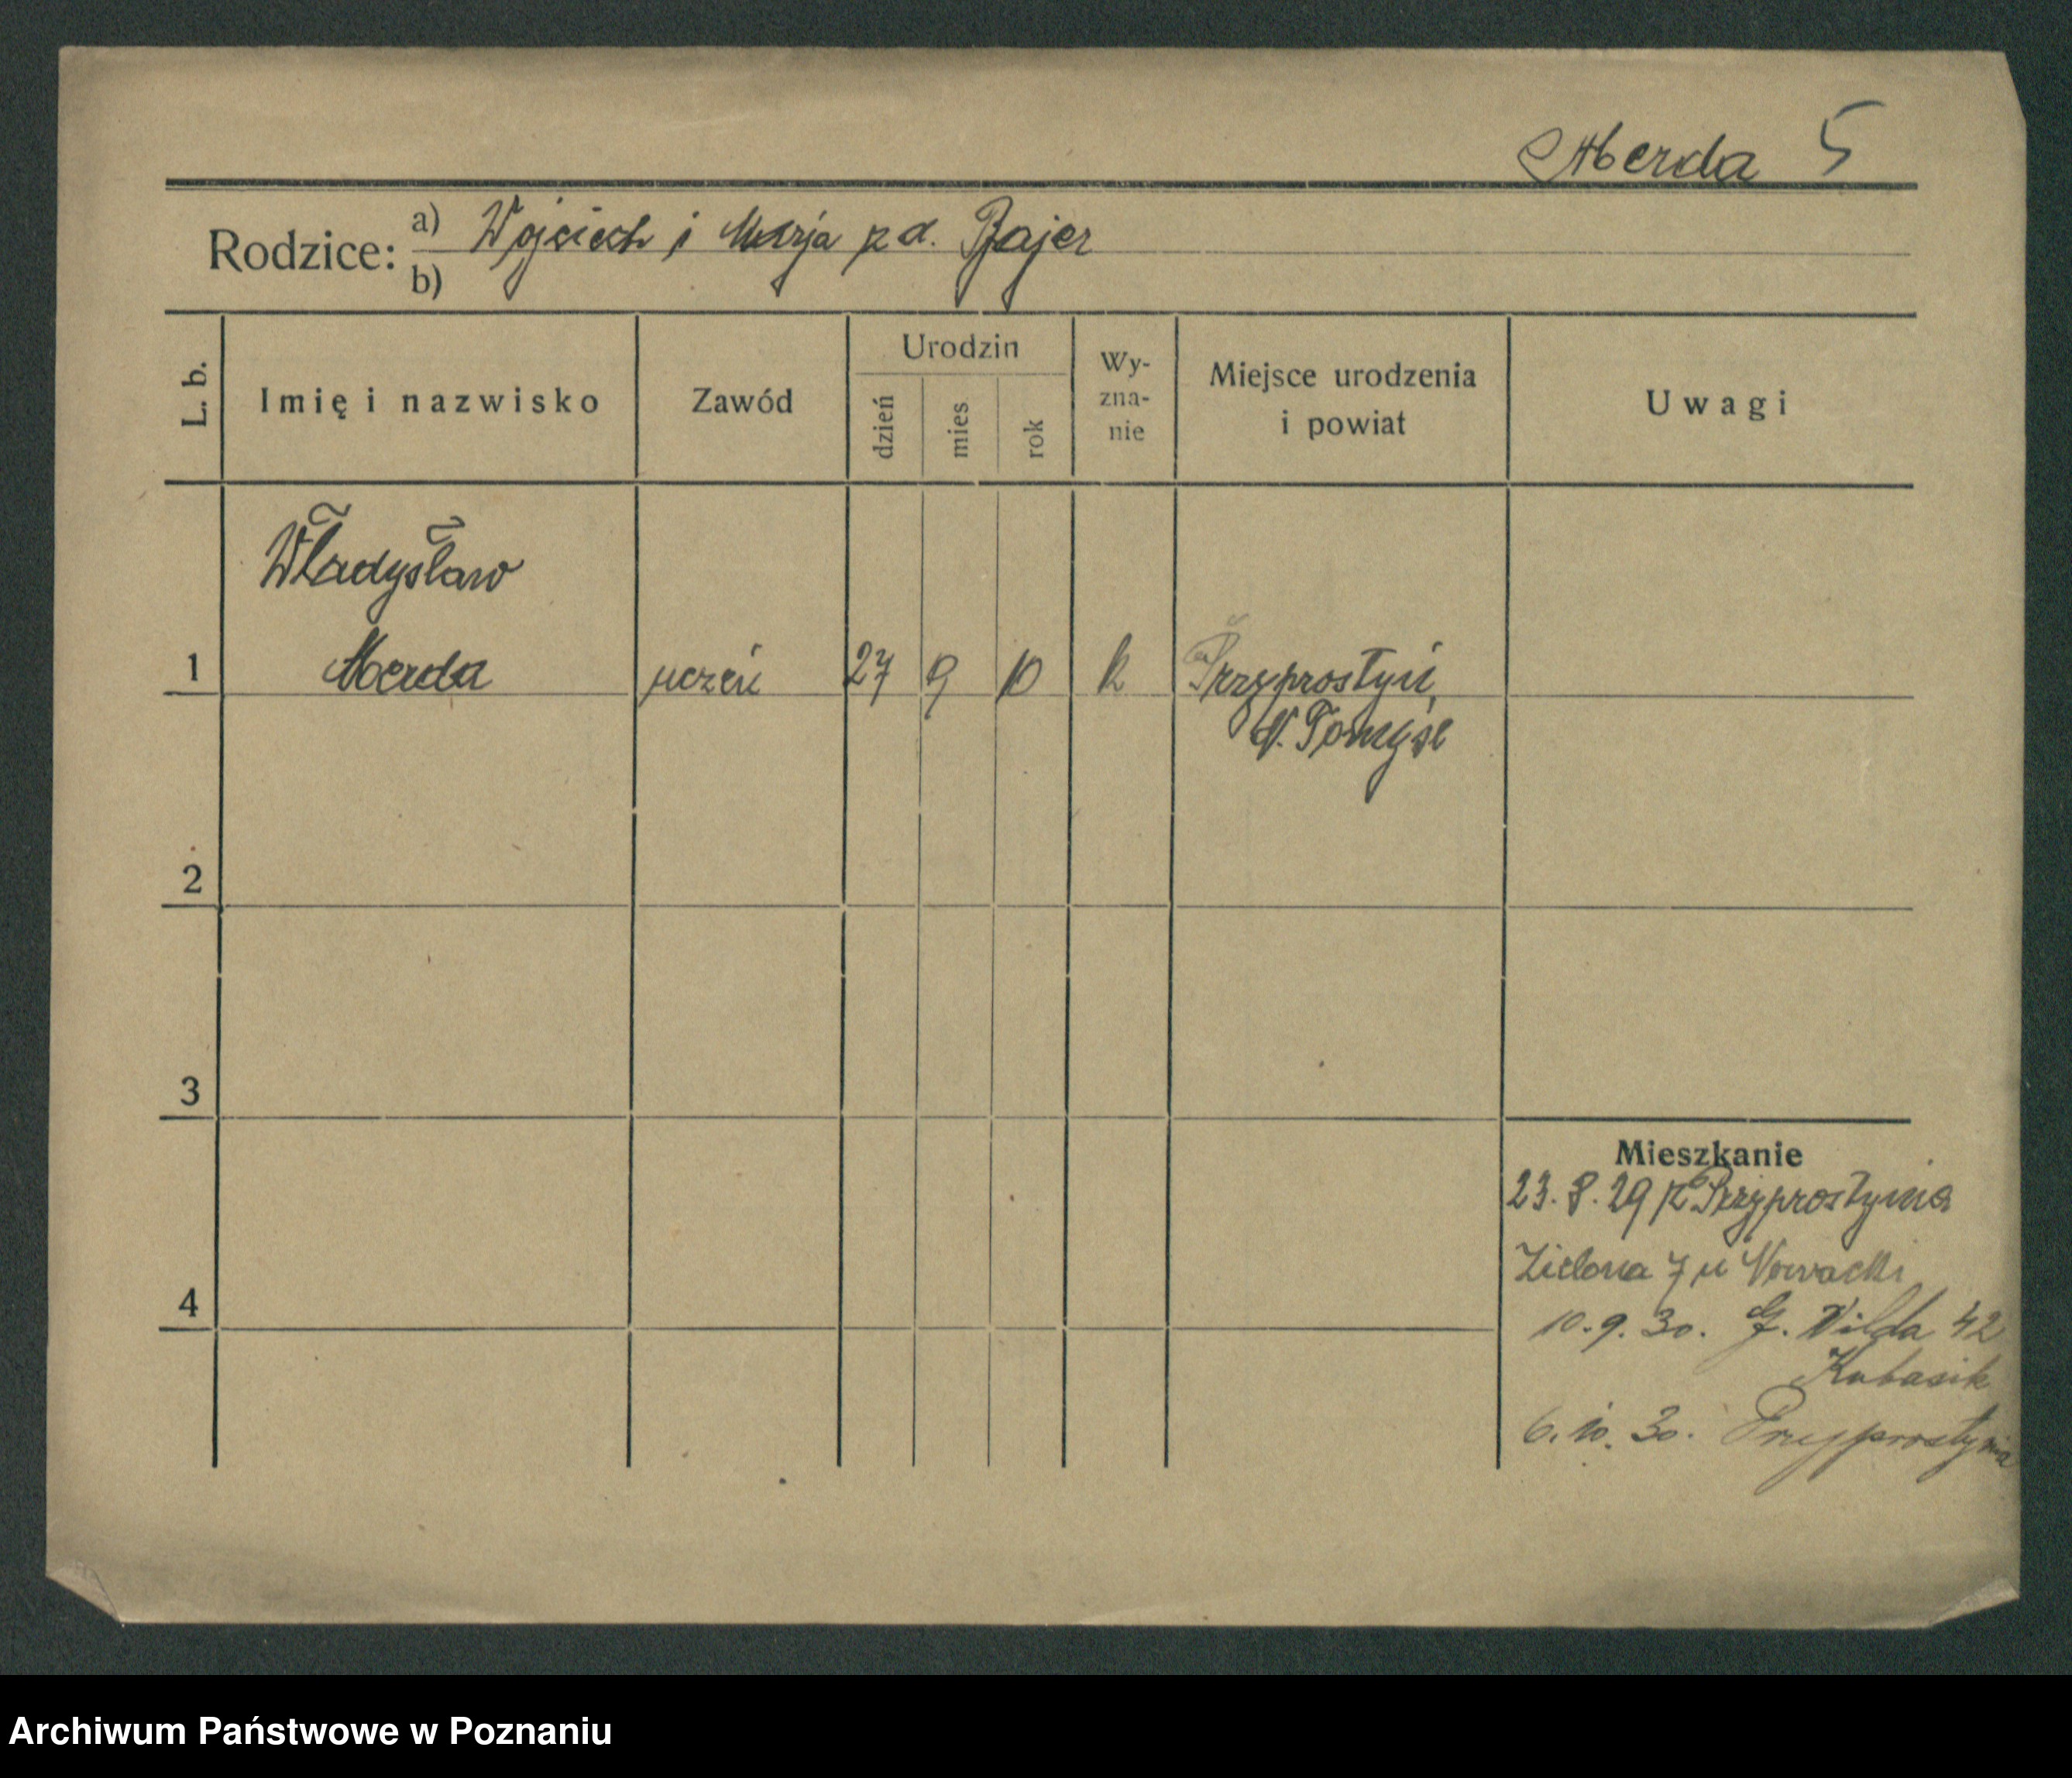 Merda 5
Rodzice: a) Wojciech i Marja z d. Bajer
b)
L. b.
Imię i nazwisko
Zawód
Urodzin
dzień
mies
rok
Wy-
zna-
nie
Miejsce urodzenia
i powiat
Uwagi
Władysław
1 Merda uczeń 27 9 10 k Przyprostyń,
N. Tomyśl
2
3
4
Mieszkanie
23. 8. 29 z Przyprostynia
Zielona 7 u Nowacki
10. 9. 30. G. Wilda 42
Kubasik
6. 10. 30. Przyprostynia
Archiwum Państwowe w Poznaniu